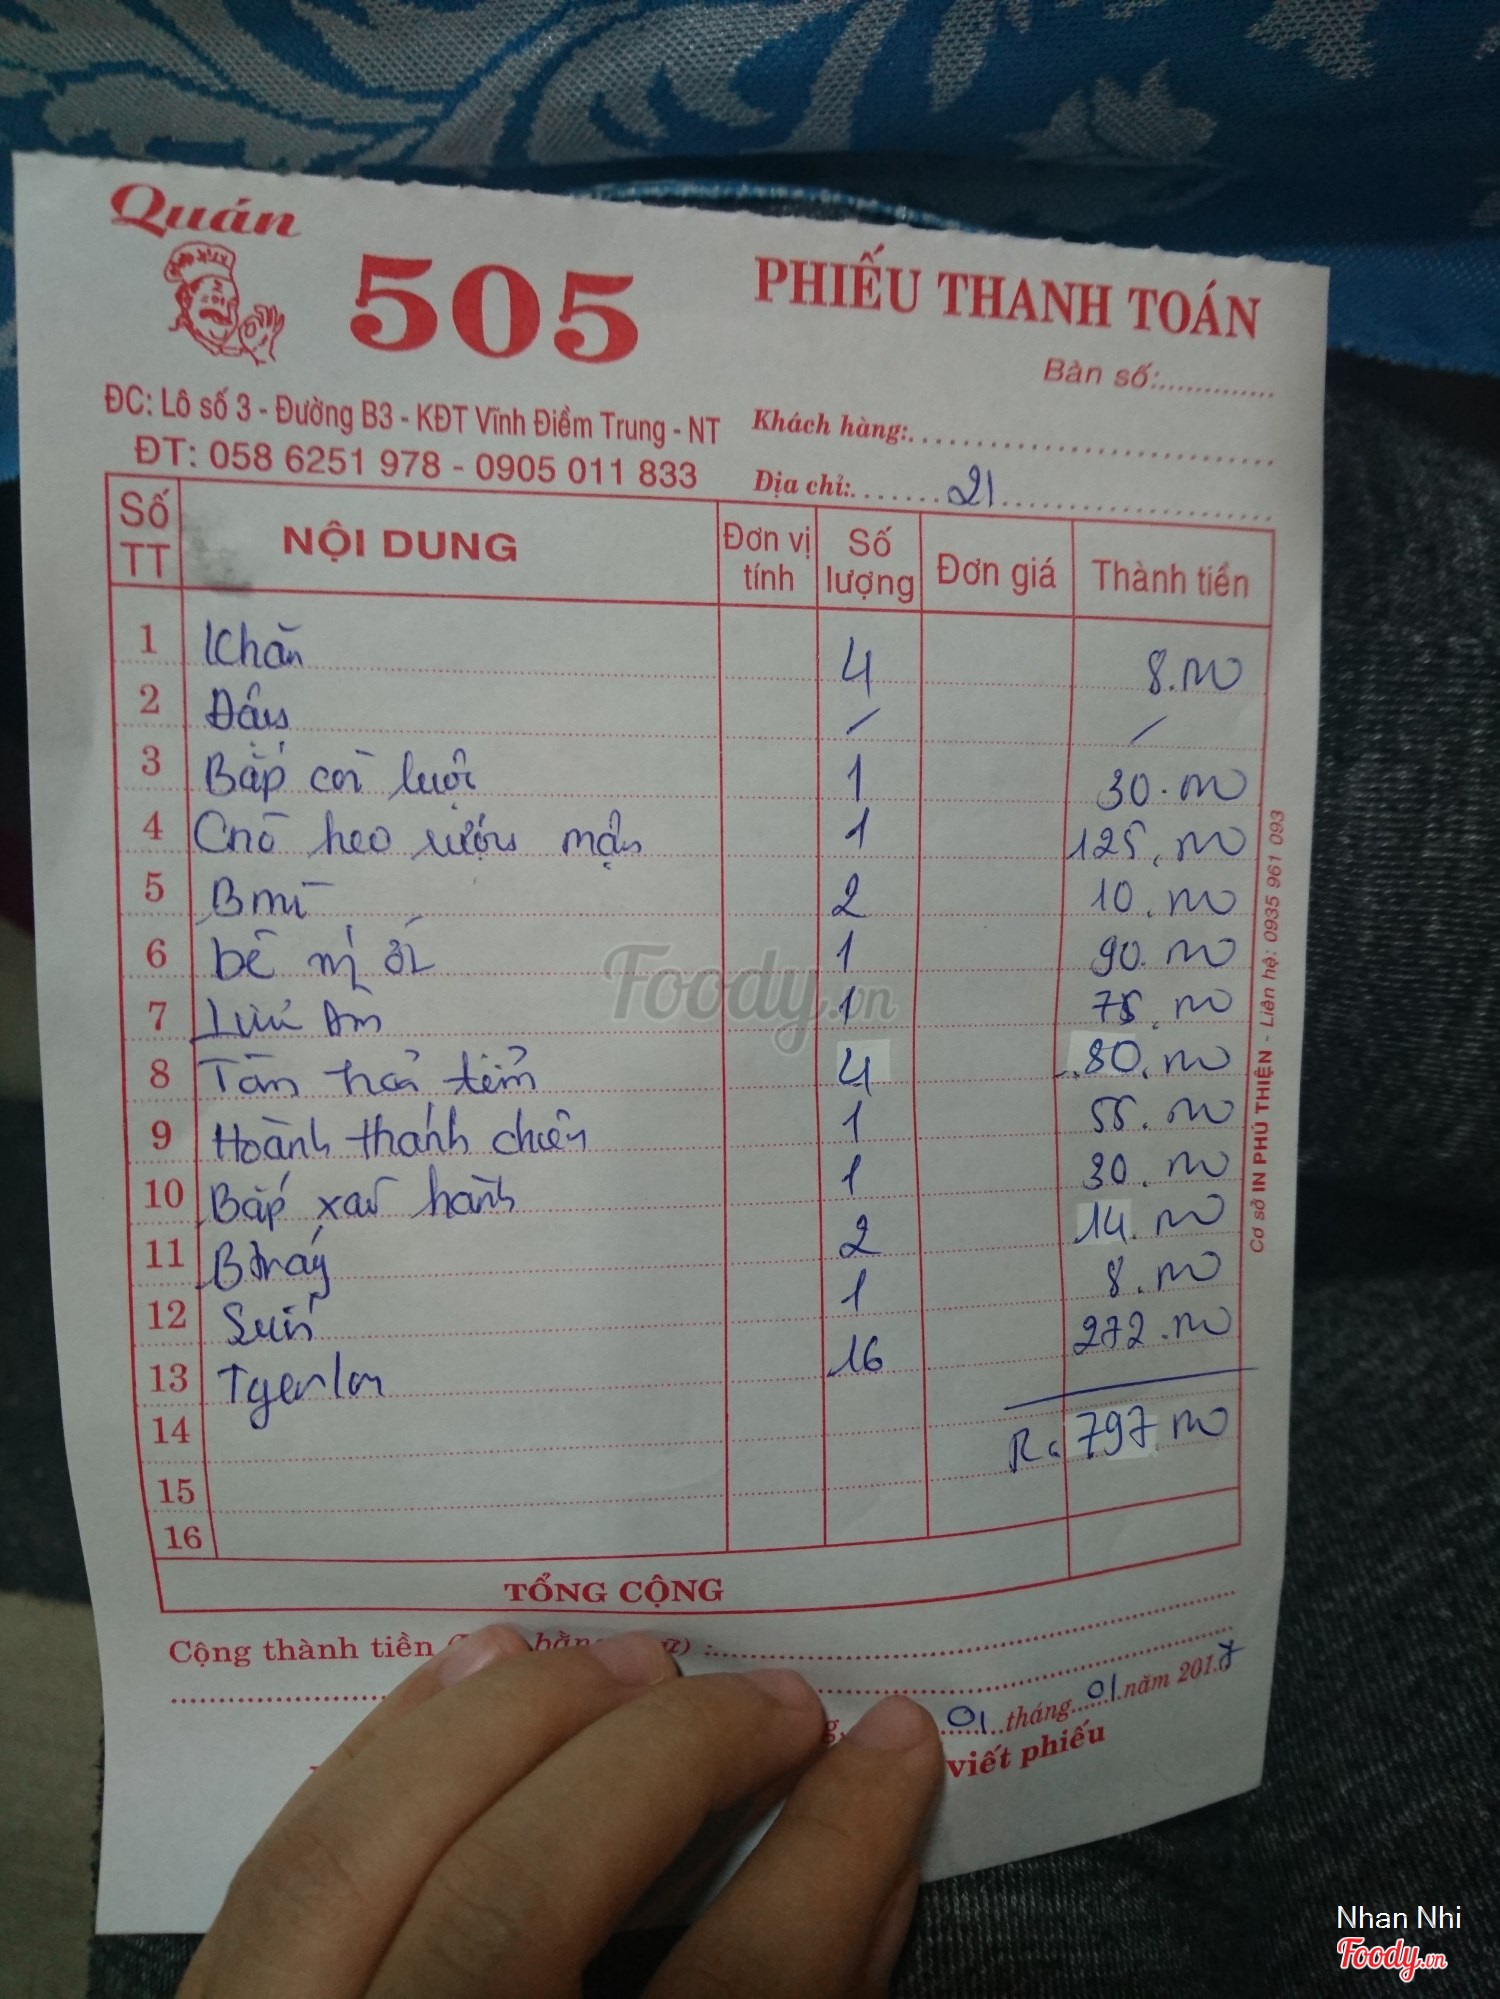 Quán
505
PHIẾU THANH TOÁN
Bàn số:
ĐC: Lô số 3 - Đường B3 - KĐT Vĩnh Điềm Trung - NT
Khách hàng:
ĐT: 058 6251 978 - 0905 011 833
Địa chỉ: 21
Số TT NỘI DUNG Đơn vị tính Số lượng Đơn giá Thành tiền
1 Khăn 4 8.000
2 Đậu / /
3 Bắp cải luộc 1 30.000
4 heo rượu mận 1 125.000
5 Bmì 2 10.000
6 bê 1 90.000
7 1 75.000
8 4 80.000
9 Hoành thánh chiên 1 55.000
10 Bắp xào hành 1 30.000
11 2 14.000
12 Suối 1 8.000
13 Tgerlon 16 272.000
14 797.000
15
16
TỔNG CỘNG
Cộng thành tiền
01 tháng 01 năm 2017
viết phiếu
Cơ sở IN PHÚ THIỆN - Liên hệ: 0935 961 093
Foody.vn
Nhan Nhi
Foody.vn